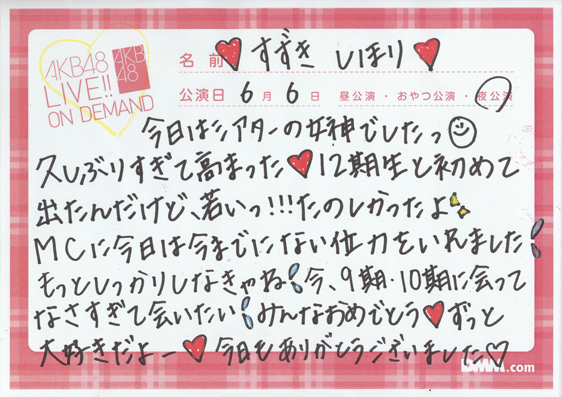 AKB48
LIVE!!
ON DEMAND
AKB
48
名前 ♥すずき しほり♥
公演日 6月6日 昼公演・おやつ公演・夜公演
今日はシアターの女神でしたっ☺
久しぶりすぎて高まった♥12期生と初めて
出たんだけど、若いっ!!!たのしかったよ
MCに今日は今までにない位力をいれました
もっとしっかりしなきゃね 今、9期・10期に会って
なさすぎて会いたい みんなおめでとう♥ずっと
大好きだよー♥ 今日もありがとうございました♡
DMM.com